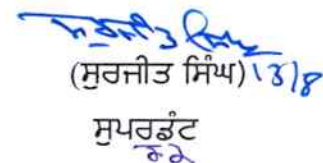 (ਸੁਰਜੀਤ ਸਿੰਘ) 13/8
ਸੁਪਰਡੰਟ